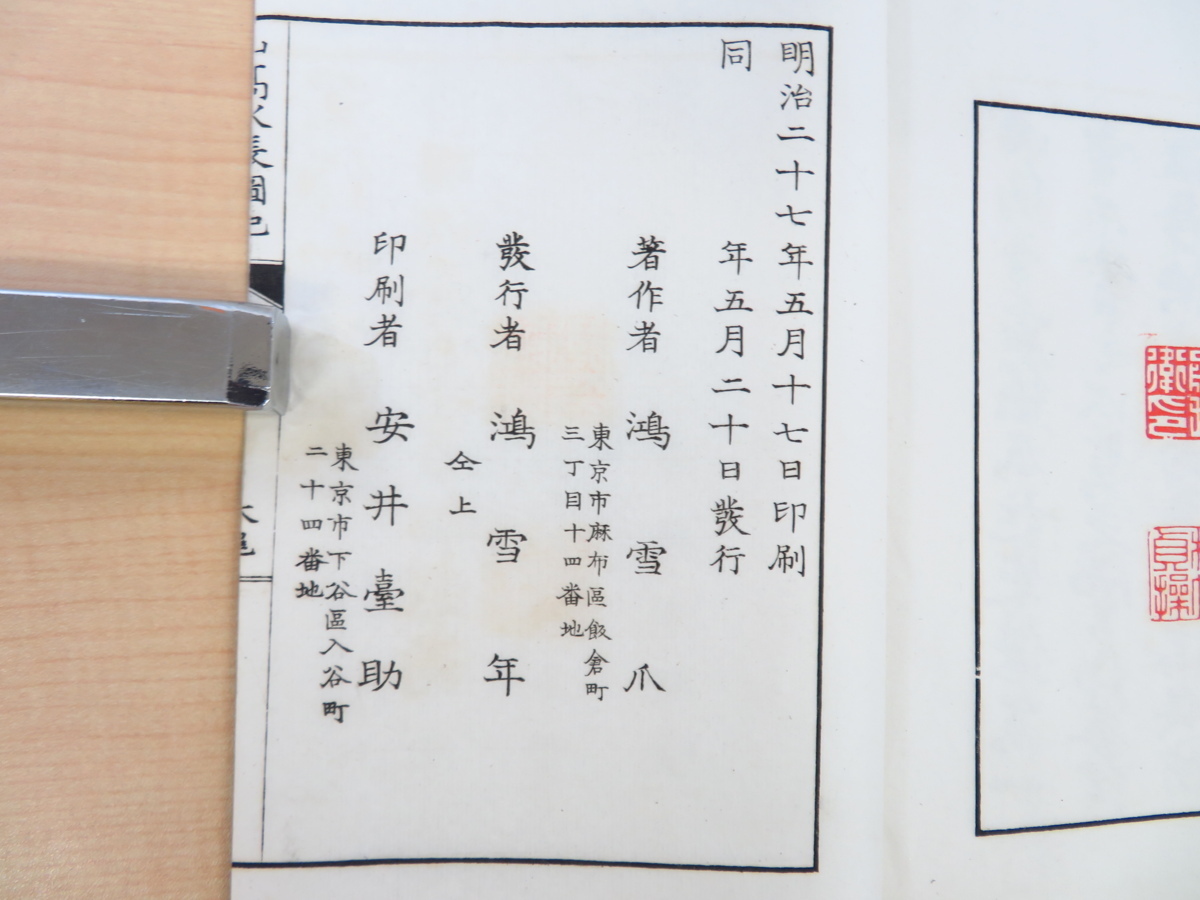 明治二十七年五月十七日印刷
同年五月二十日發行
著作者 鴻雪爪
東京市麻布區飯倉町
三丁目十四番地
發行者 鴻雪年
仝上
印刷者 安井臺助
東京市下谷區入谷町
二十四番地
山高水長圖記